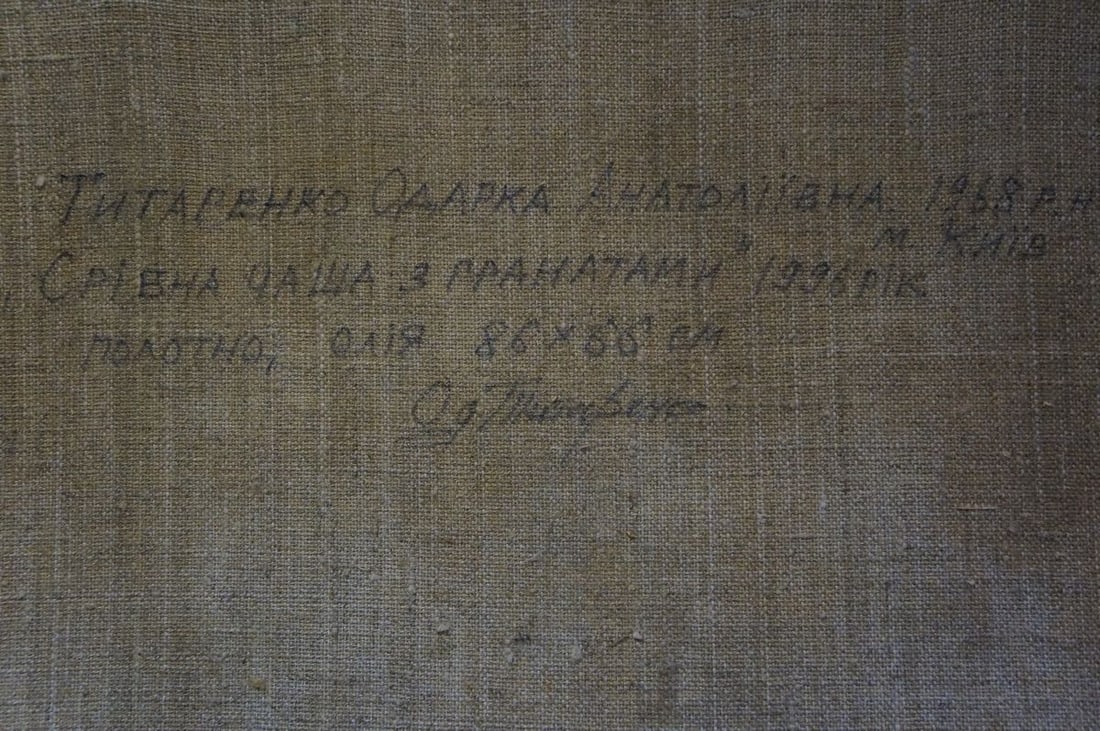 Титаренко Одарка Анатоліївна. 1968 р.н
м. Київ
„Срібна чаша з гранатами" 1996 рік
полотно, олія 86 x 66 см